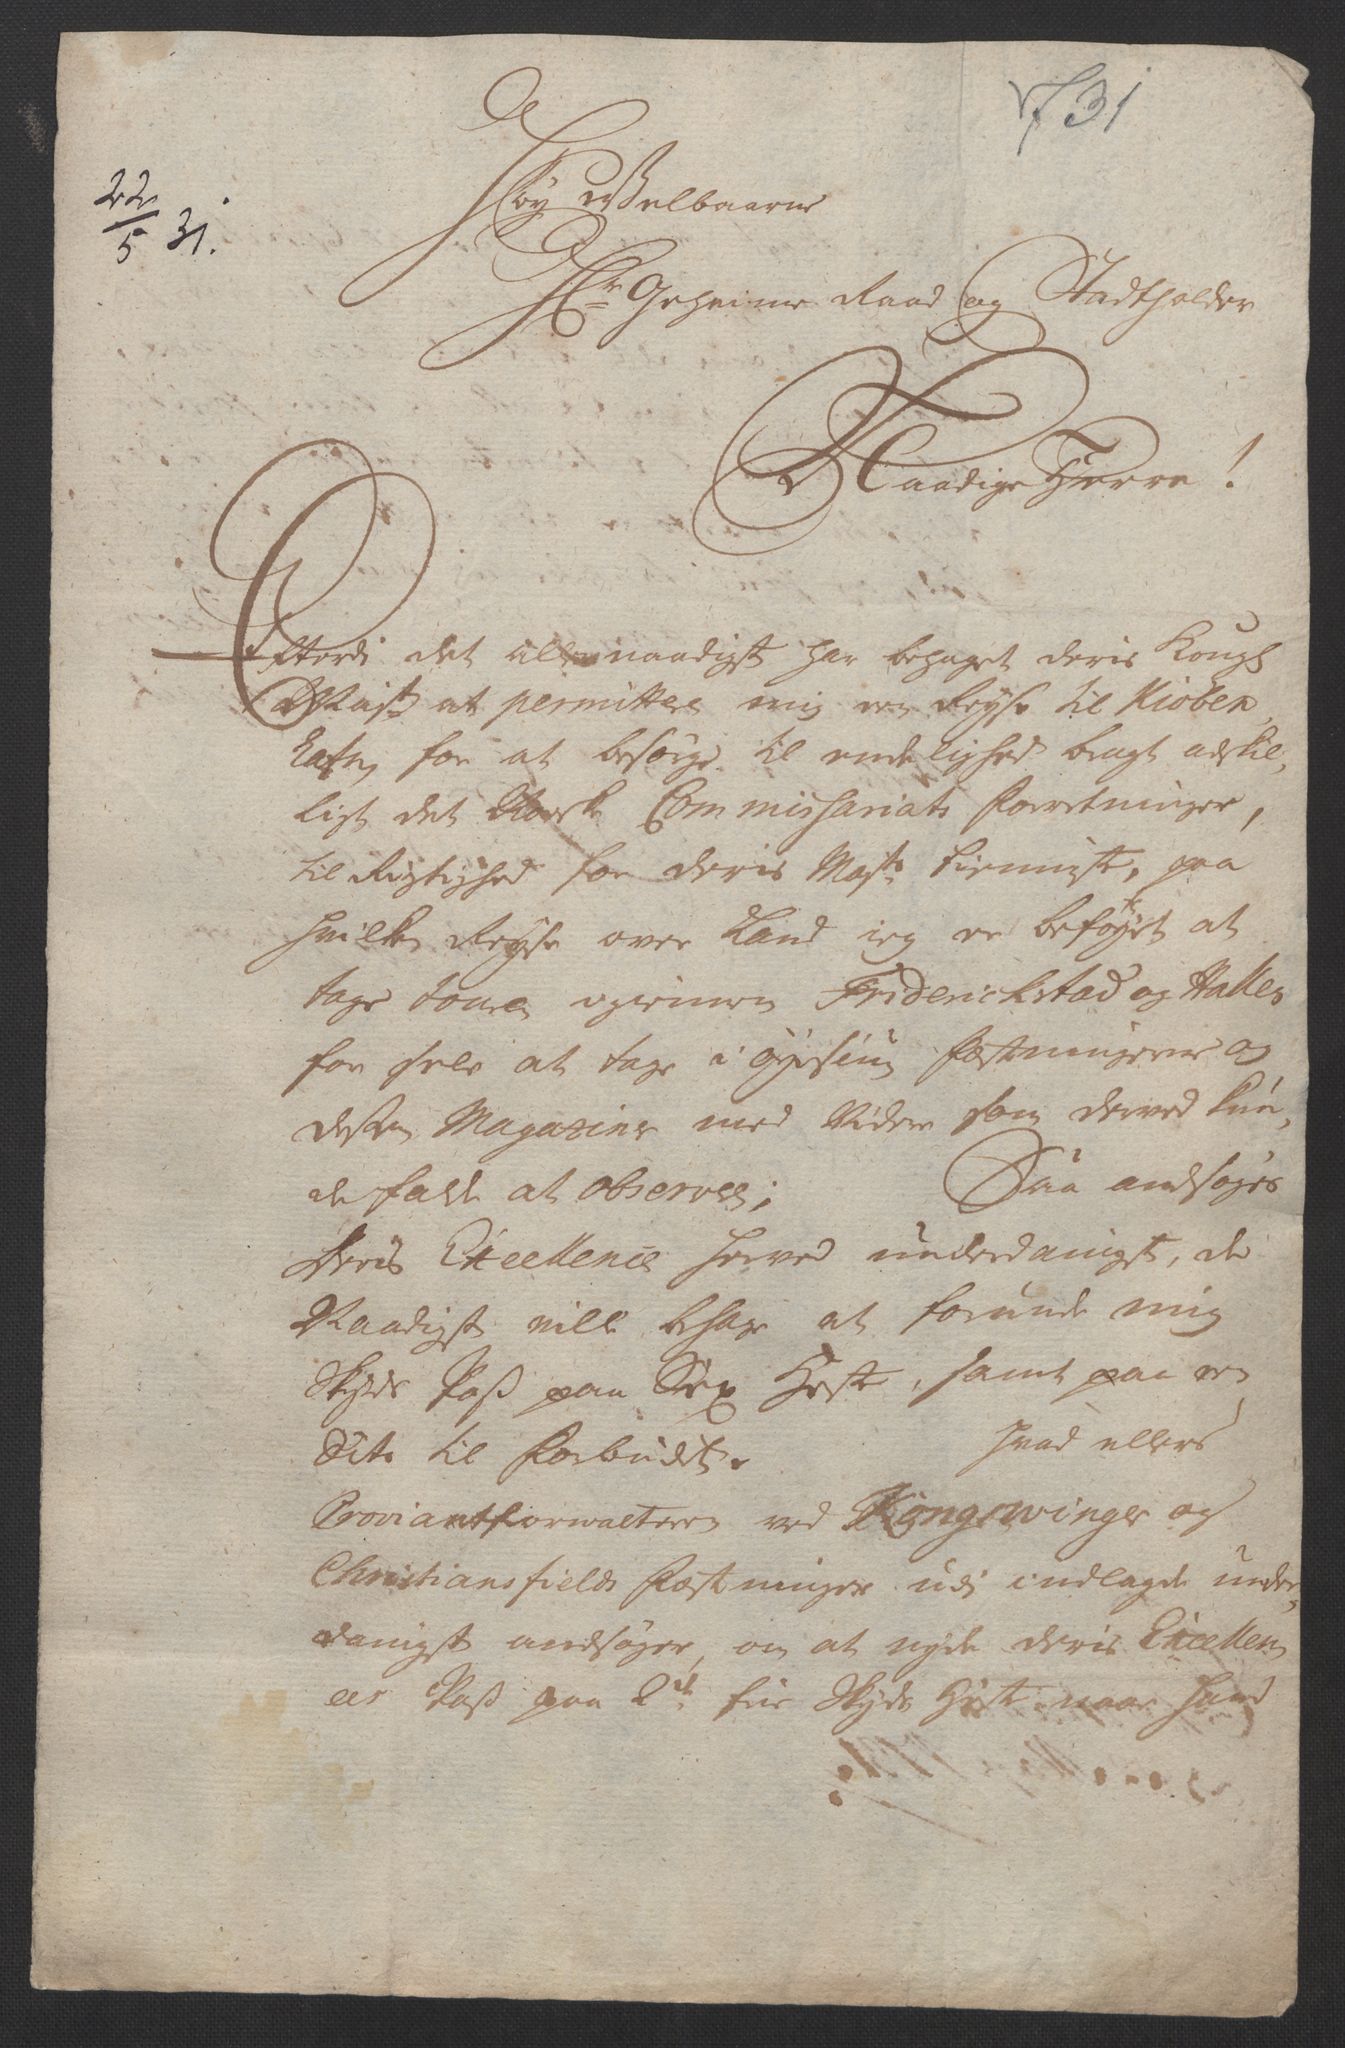 731
22/5 31.
Høy Velbaarne
Hr Geheime Raad og Stadtholder
Naadige Herre!
Efterdi det allernaadigst har behaget deris Kongl
Mayst at permittere mig en Reyse til Kiøben
hafn for at besørge til endelighed bragt adskil,
ligt det Norske Commissariats Forretninger,
til Rigtighed for deris Mayts tienniste, paa
hvilken Reyse over Land ieg er beføyet at
tage touren igiennem Friderichstad og Halden
for selv at tage i øyesiun Fæstningerne og
dessen Magazine med Videre som derved kun,
de falde at observere; Saa andsøges
Deris Excellence herved underdanigst, de
Naadigst ville behage at forunde mig
Skyds Pass paa Sex Heste, samt paa en
Dito til Forbudet. Hvad ellers
Proviantforwalteren ved Kongswinger og
Christiansfields Fæstninger udi indlagde under,
danigst andsøger, om at nyde deris Excellen
ces Pass paa 2de frie Skyds Heste naar hand